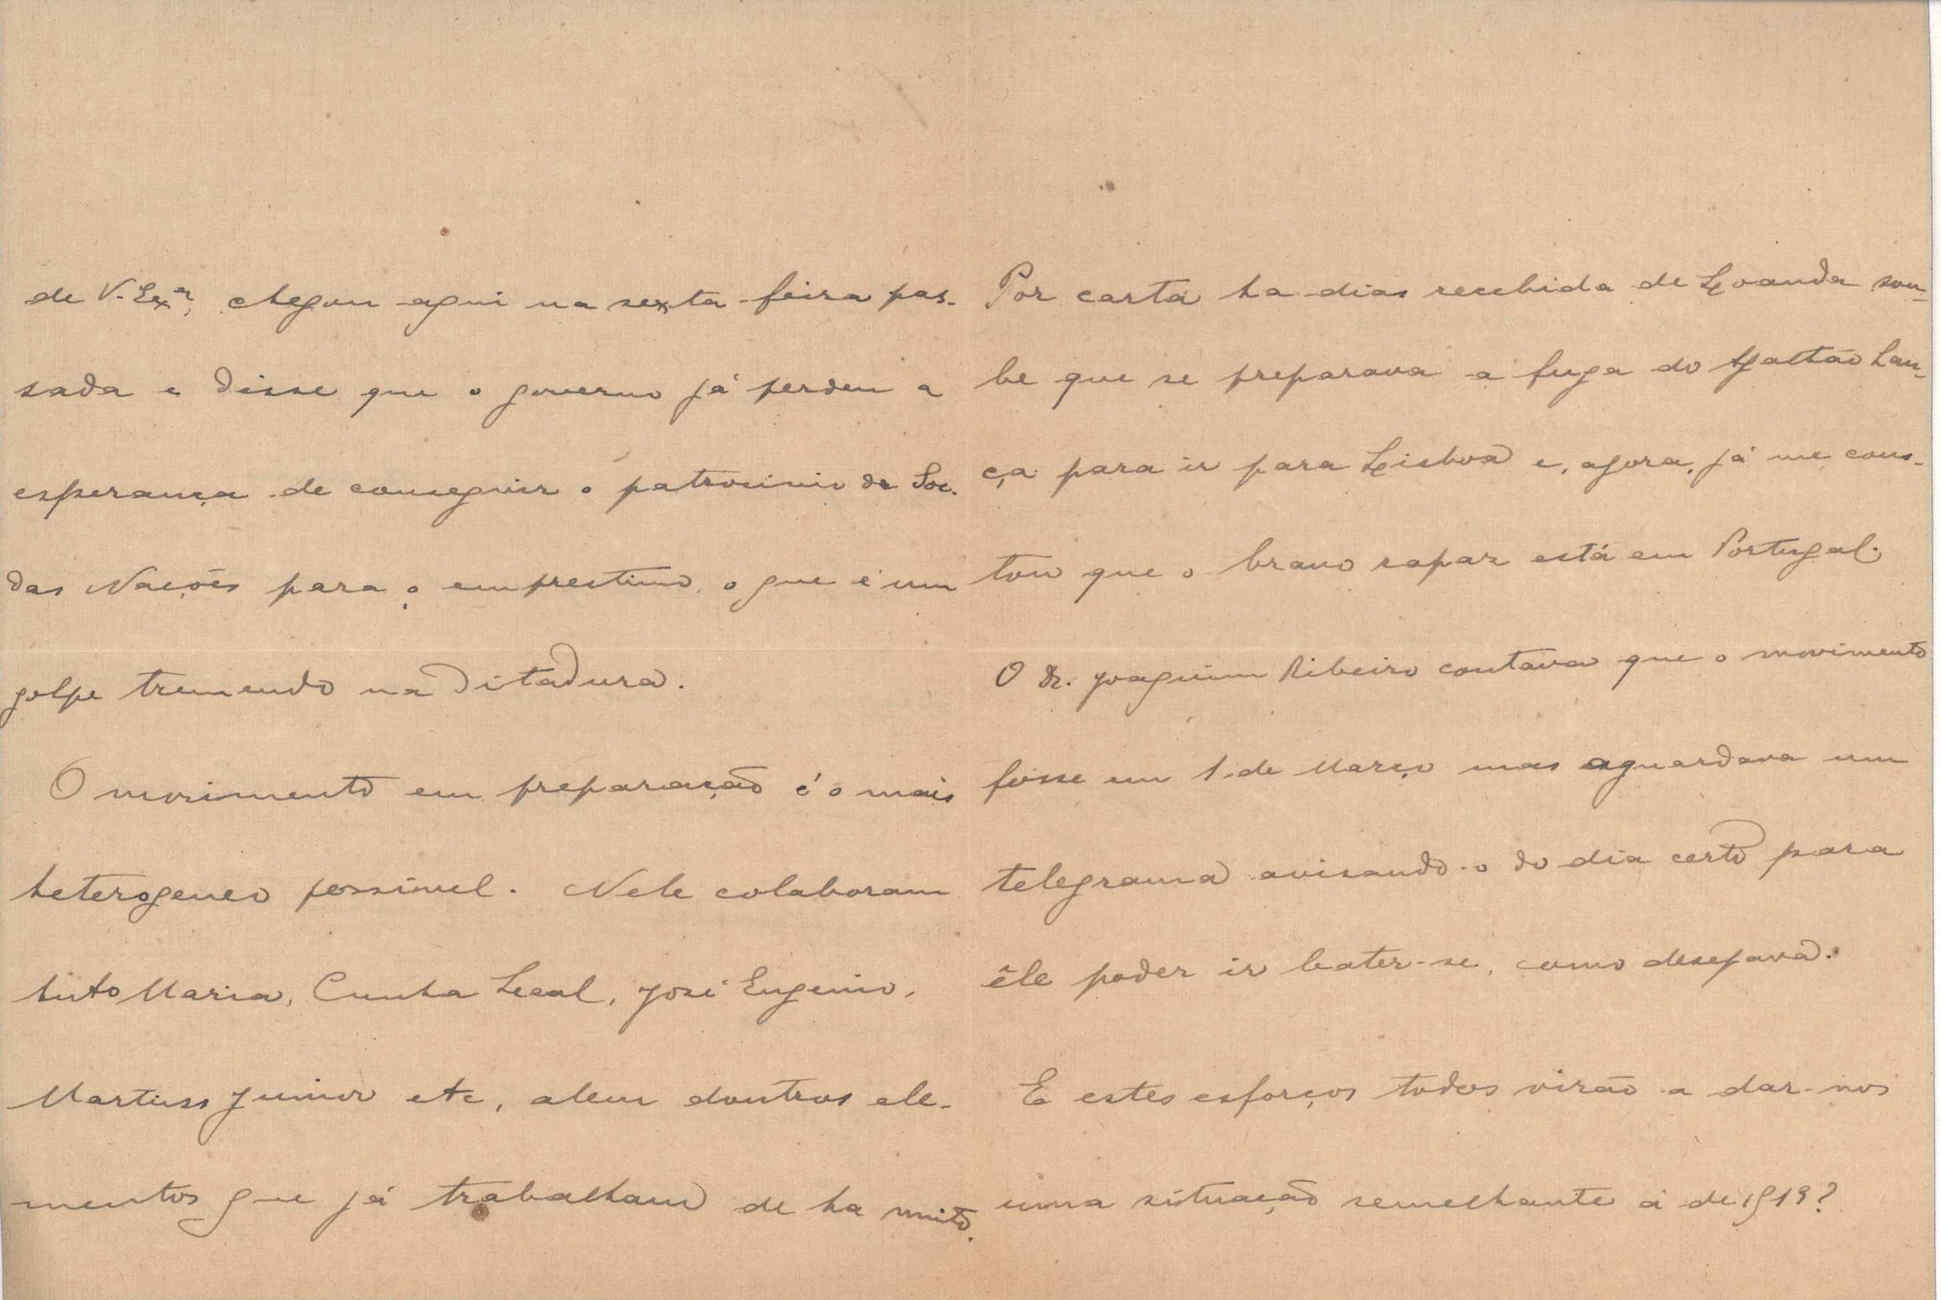 de V. Exª, chegou aqui na sexta-feira pas-
sada e disse que o governo já perdeu a
esperança de conseguir o patrocinio da Soc.
das Nações para o emprestimo, o que é um
golpe tremendo na Ditadura.
O movimento em preparação é o mais
heterogeneo possivel. Nele colaboram
Maria, Cunha Leal, José Eugenio,
Martins Junior etc, alem doutros ele-
mentos que já trabalham de ha muito.
Por carta ha dias recebida de Loanda sou-
be que se preparava a fuga do Galtão Lan-
ça para ir para Lisboa e, agora, já me cons-
tou que o bravo rapaz está em Portugal.
O Dr. Joaquim Ribeiro contava que o movimento
fosse em 1 de Março mas aguardava um
telegrama avisando-o do dia certo para
êle poder ir bater-se, como desejava.
E estes esforços todos virão a dar-nos
uma situação semelhante á de 1919?